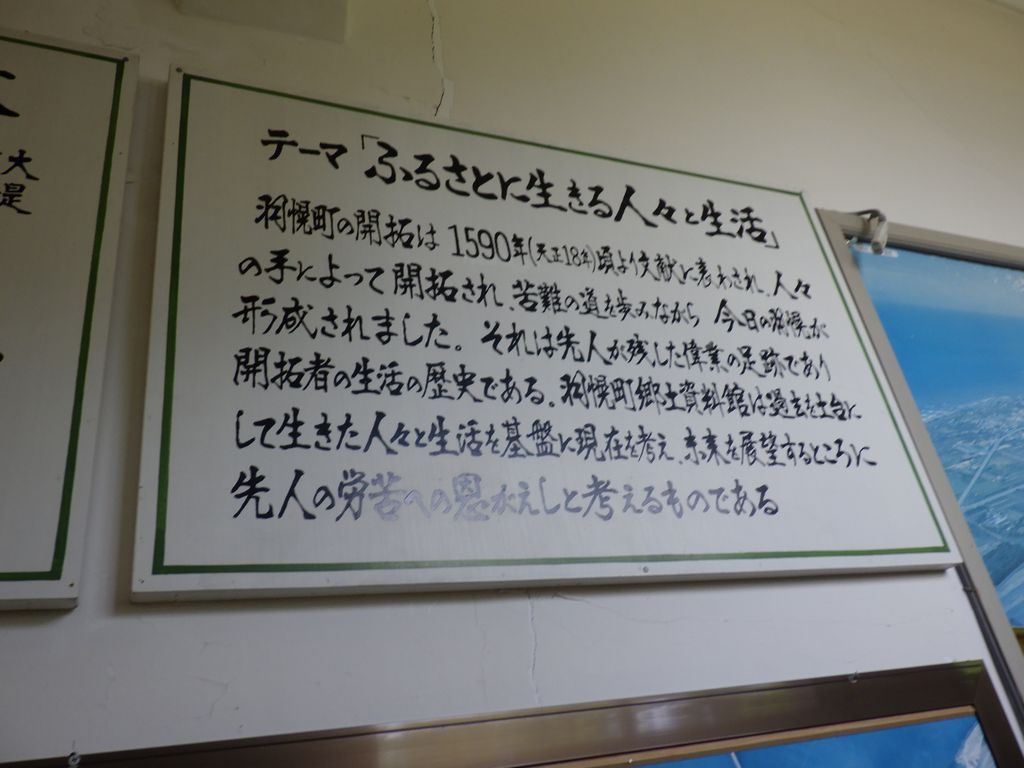 大
堤
テーマ「ふるさとに生きる人々と生活」
羽幌町の開拓は1590年(天正18年)頃より文献に表わされ、人々
の手によって開拓され、苦難の道を歩みながら 今日の羽幌が
形成されました。それは先人が残した偉業の足跡であり
開拓者の生活の歴史である。羽幌町郷土資料館は過去を土台に
して生きた人々と生活を基盤に現在を考え、未来を展望するところに
先人の労苦への恩がえしと考えるものである